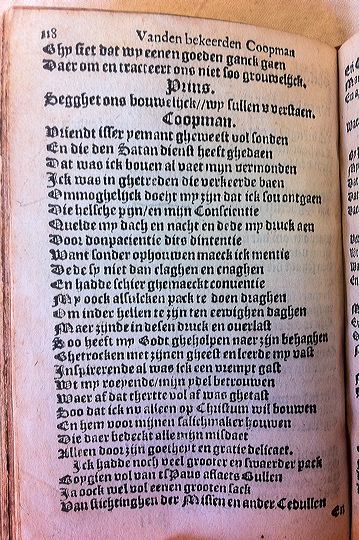 118 Vanden bekeerden Coopman
Ghy siet dat wy eenen goeden ganck gaen
Daer om en tracteert ons niet soo grouwelijck.
Pluus.
Segghet ons bouwelijck//wy sullen v verstaen.
Coopman.
Vriendt isser yemant gheweest vol sonden
En die den Satan dienst heeft ghedaen
Dat was ick bouen al vaet mijn vermonden
Ick was in ghetreden die verkeerde baen
Onmoghelijck docht my zijn dat ick sou ontgaen
Die helsche pijn/en mijn Conscientie
Quelde my dach en nacht en dede my druck aen
Door donpacientie dits dintentie
Want sonder ophouwen maeck ick mentie
Dede sy niet dan claghen en cnaghen
En hadde schier ghemaeckt conuentie
My oock alsulcken pack te doen draghen
Om inder hellen te zijn ten eewighen daghen
Maer zijnde in desen druck en ouerlast
Soo heeft my Godt gheholpen naer zijn behaghen
Ghetrocken met zijnen gheest en leerde my vast
Inspirerende al was ick een vrempt gast
Wt my roepende/mijn ydel betrouwen
Waer af dat thertte vol af was ghetast
Soo dat ick nv alleen op Christum wil bouwen
En hem voor mijnen salichmaker houwen
Die daer bedeckt alle mijn misdaet
Alleen door zijn goetheyt en gratie delicaet.
Ick hadde noch veel grooter en swaerder pack
Coygien vol van tsPaus aflaets Bullen
Ja oock wel vol eenen grooten sack
Van stichtinghen der Missen en ander Cedullen
En